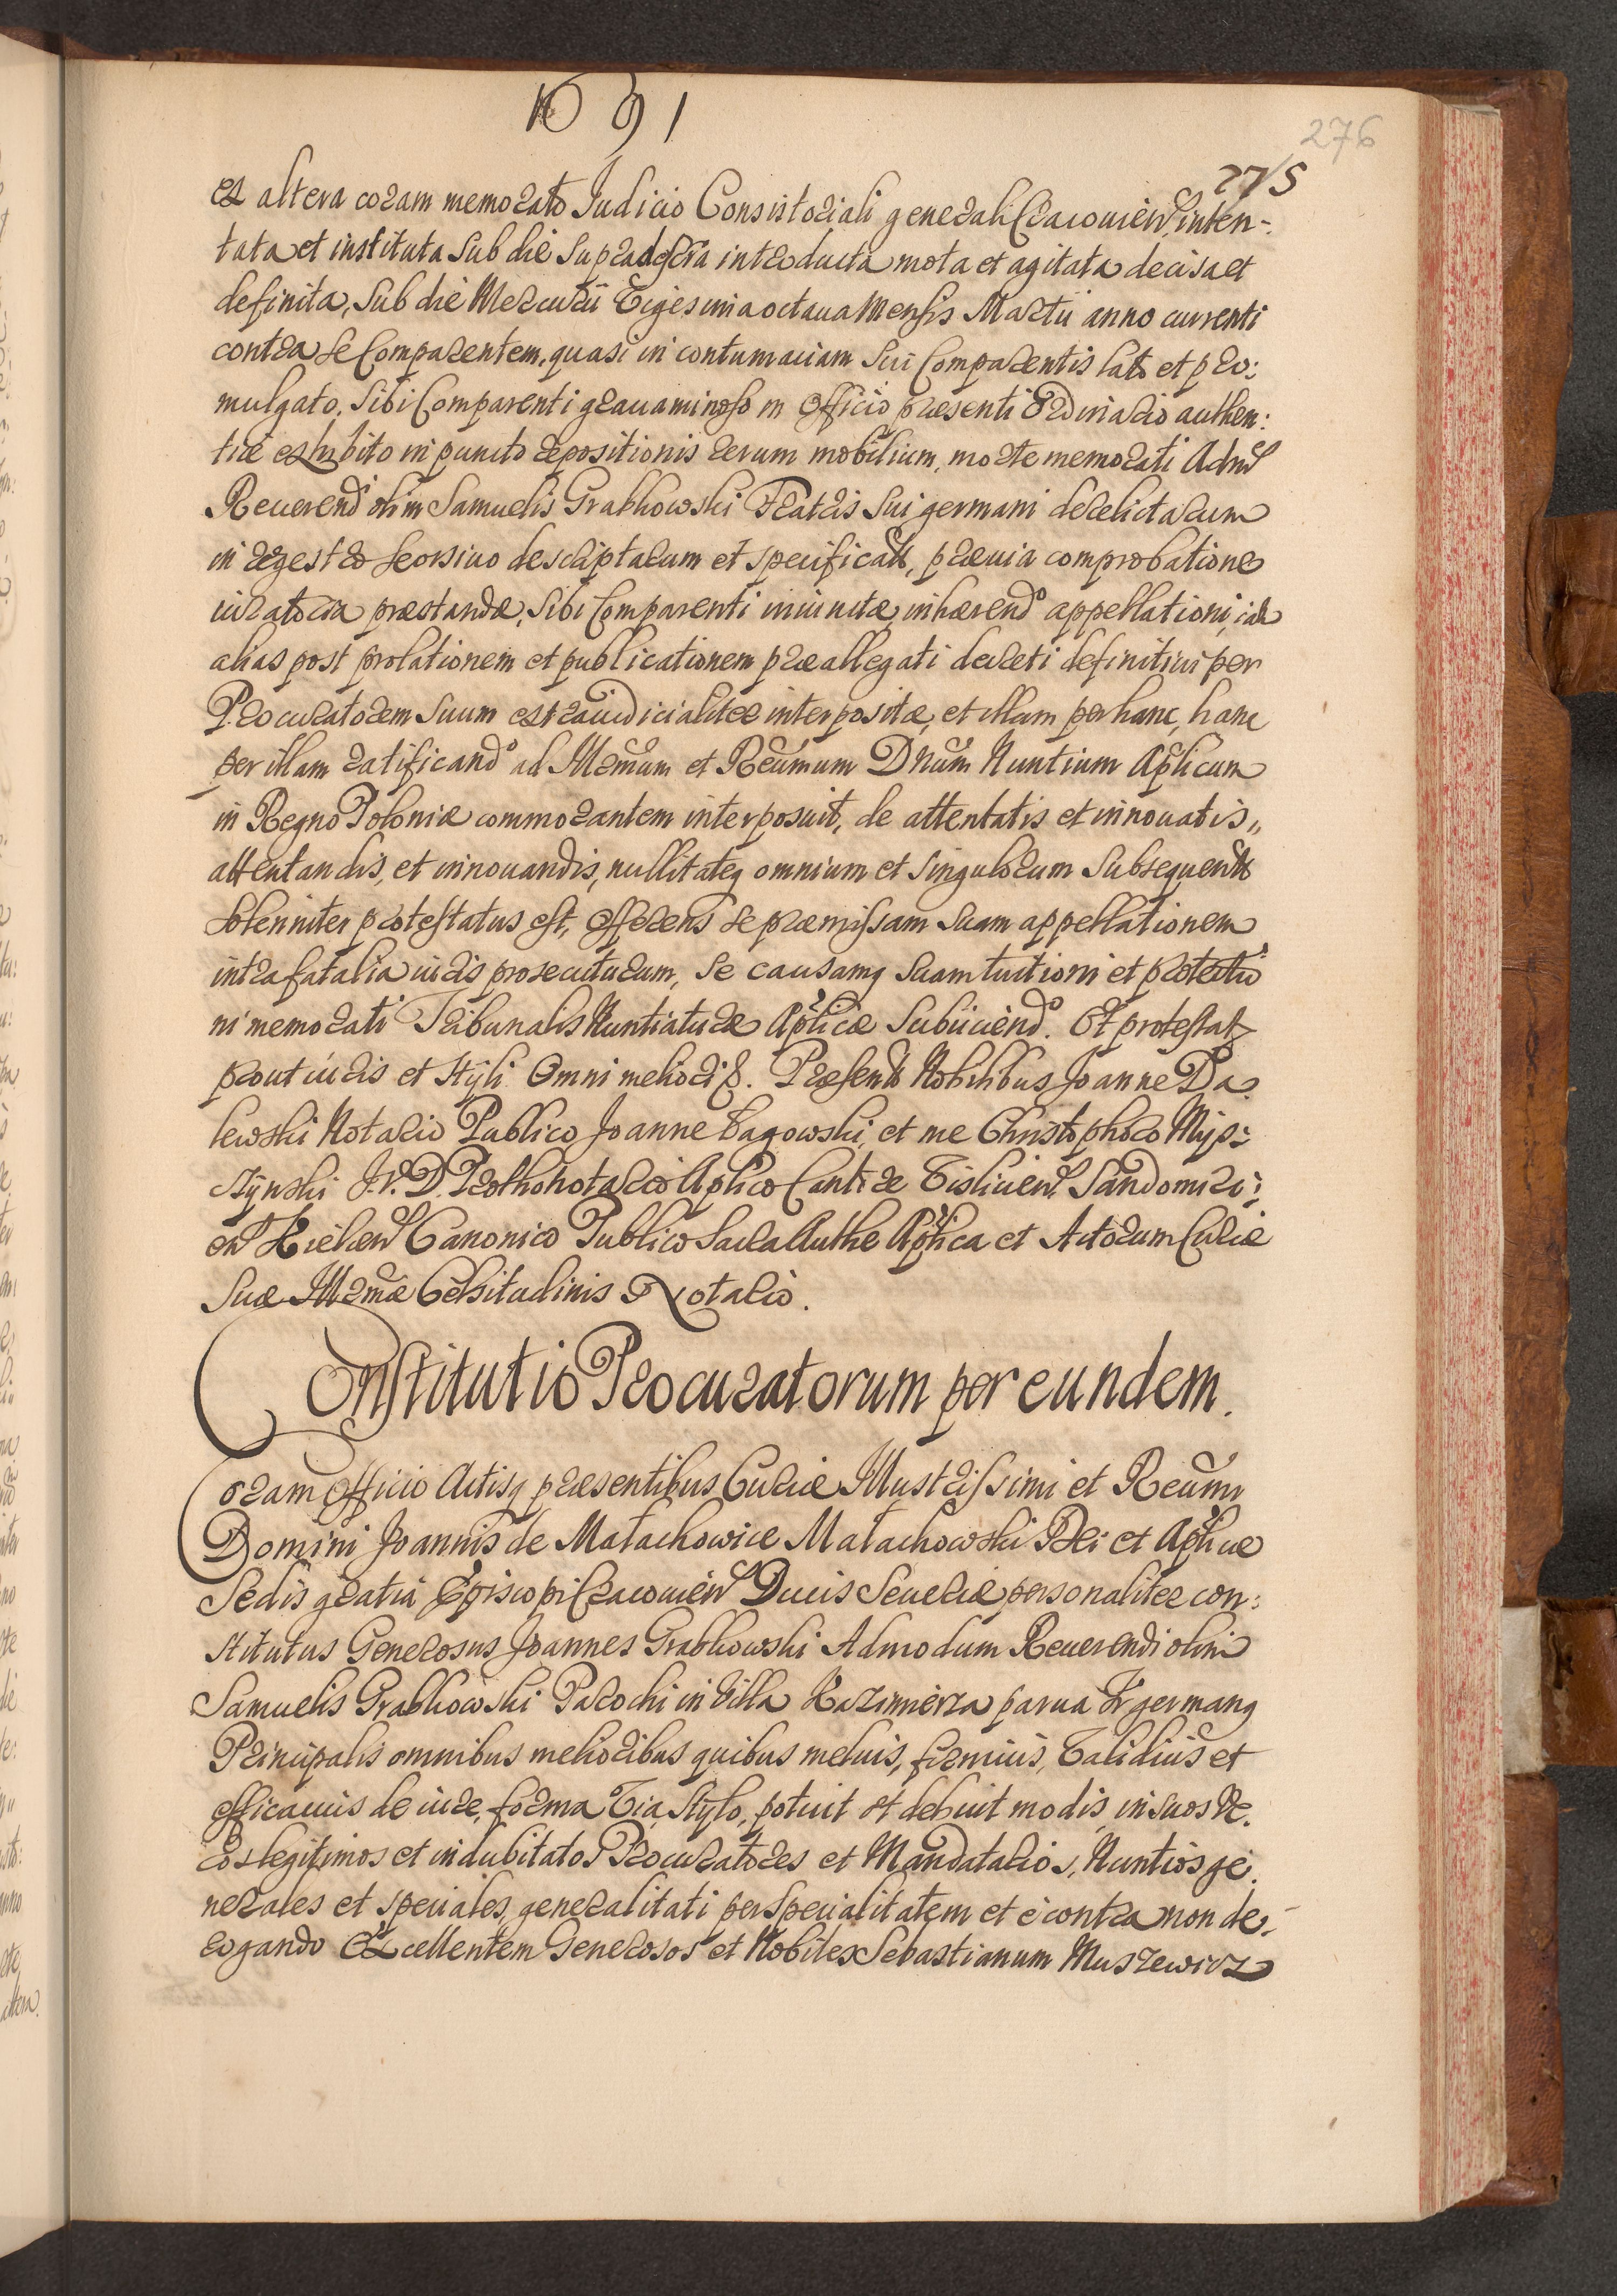 1691
276
275
ex altera coram memorato Judicio Consistoriali generali Cracouien inten-
tata et instituta sub die supradescta introducta mota et agitata decisa et
definita, sub die Mercurii Vigesima octaua Mensis Martii anno currenti
contra se Comparentem, quasi in contumaciam sui Comparentis lato et pro:
mulgato, sibi Comparenti grauaminoso in Officio praesenti Ordinario authen:
tice exhibito in puncto repositionis rerum mobilium, morte memorati Adm
Reuerend olim Samuelis Grabkowski Fratris sui germani derelictarum
in regestro seorsiuo descriptarum et specificatt, praeuia comprobatione
iuratoria praestandae, sibi Comparenti iniunctae, inhaerendo appellationi,
alias post prolationem et publicationem praeallegati decreti definitiui per
Procuratorem suum extraiudicialiter interpositae, et illam per hanc, hanc
per illam ratificando ad Illrmum et Reumum Dnum Nuntium Aplicum
in Regno Poloniae commorantem interposuit, de attentatis et innouatis,,
attentandis, et innouandis, nullitateq omnium et singulorum subsequentt
solenniter protestatus est, offerens se praemissam suam appellationem
intra fatalia iuris prosecuturum, se causamq suam tuitioni et protectio
ni memorati Tribunalis Nuntiaturae Aplicae subiiciendo. Et protestat
prout iuris et styli Omni meliori &. Praesentt Nobilibus Joanne Da
lewski Notario Publico Joanne Łagowski, et me Christophoro Myps:
czynski J.V.D. Prothonotario Aplico Cantore Visliciens Sandomiri:
en Kielcen Canonico Publico Sacra Authe Aplica et Actorum Curiae
Suae Illrmae Celsitudinis Notario.
Constitutio Procuratorum per eundem.
Coram Officio Actisq praesentibus Curiae Illustrissimi et Reumi
Domini Joannis de Małachowice Małachowski Dei et Aplicae
Sedis gratia Episcopi Cracouien Ducis Seueriae personaliter con:
stitutus Generosus Joannes Grabkowski Admodum Reuerendi olim
Samuelis Grabkowski Parochi in Villa Kazimierza parua Fr germanq
Principalis omnibus melioribus quibus melius, firmius, Validius et
efficacius de iure, forma Via, Stylo, potuit et debuit modis, in suos Ve.
ros legitimos et indubitatos Procuratores et Mandatarios, Nuntios ge.
nerales et speciales, generalitati per specialitatem et e contra non de-
rogando Excellentem Generosos et Nobiles Sebastianum Muszewicz